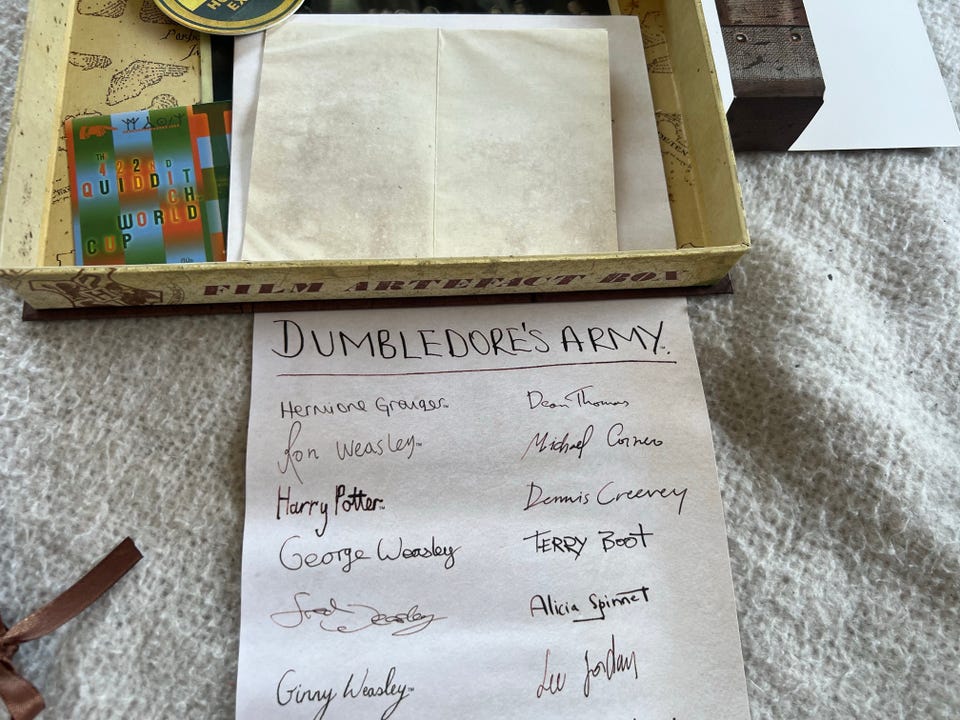 TH
422ND
QUIDDIT
CH
WORLD
CUP
FILM ARTEFACT BOX
DUMBLEDORE'S ARMY.
Hermione Granger™ Dean Thomas
Ron Weasley™ Michael Corner
Harry Potter™ Dennis Creevey
George Weasley TERRY BOOT
Fred Weasley Alicia Spinnet
Ginny Weasley™ Lee Jordan